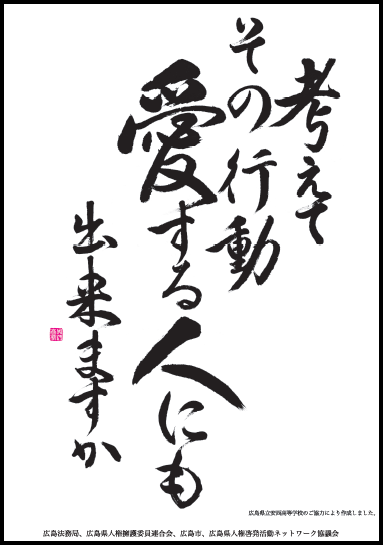 考えて
その行動
愛する人にも
出来ますか
広島県立安西高等学校のご協力により作成しました。
広島法務局、広島県人権擁護委員連合会、広島市、広島県人権啓発活動ネットワーク協議会